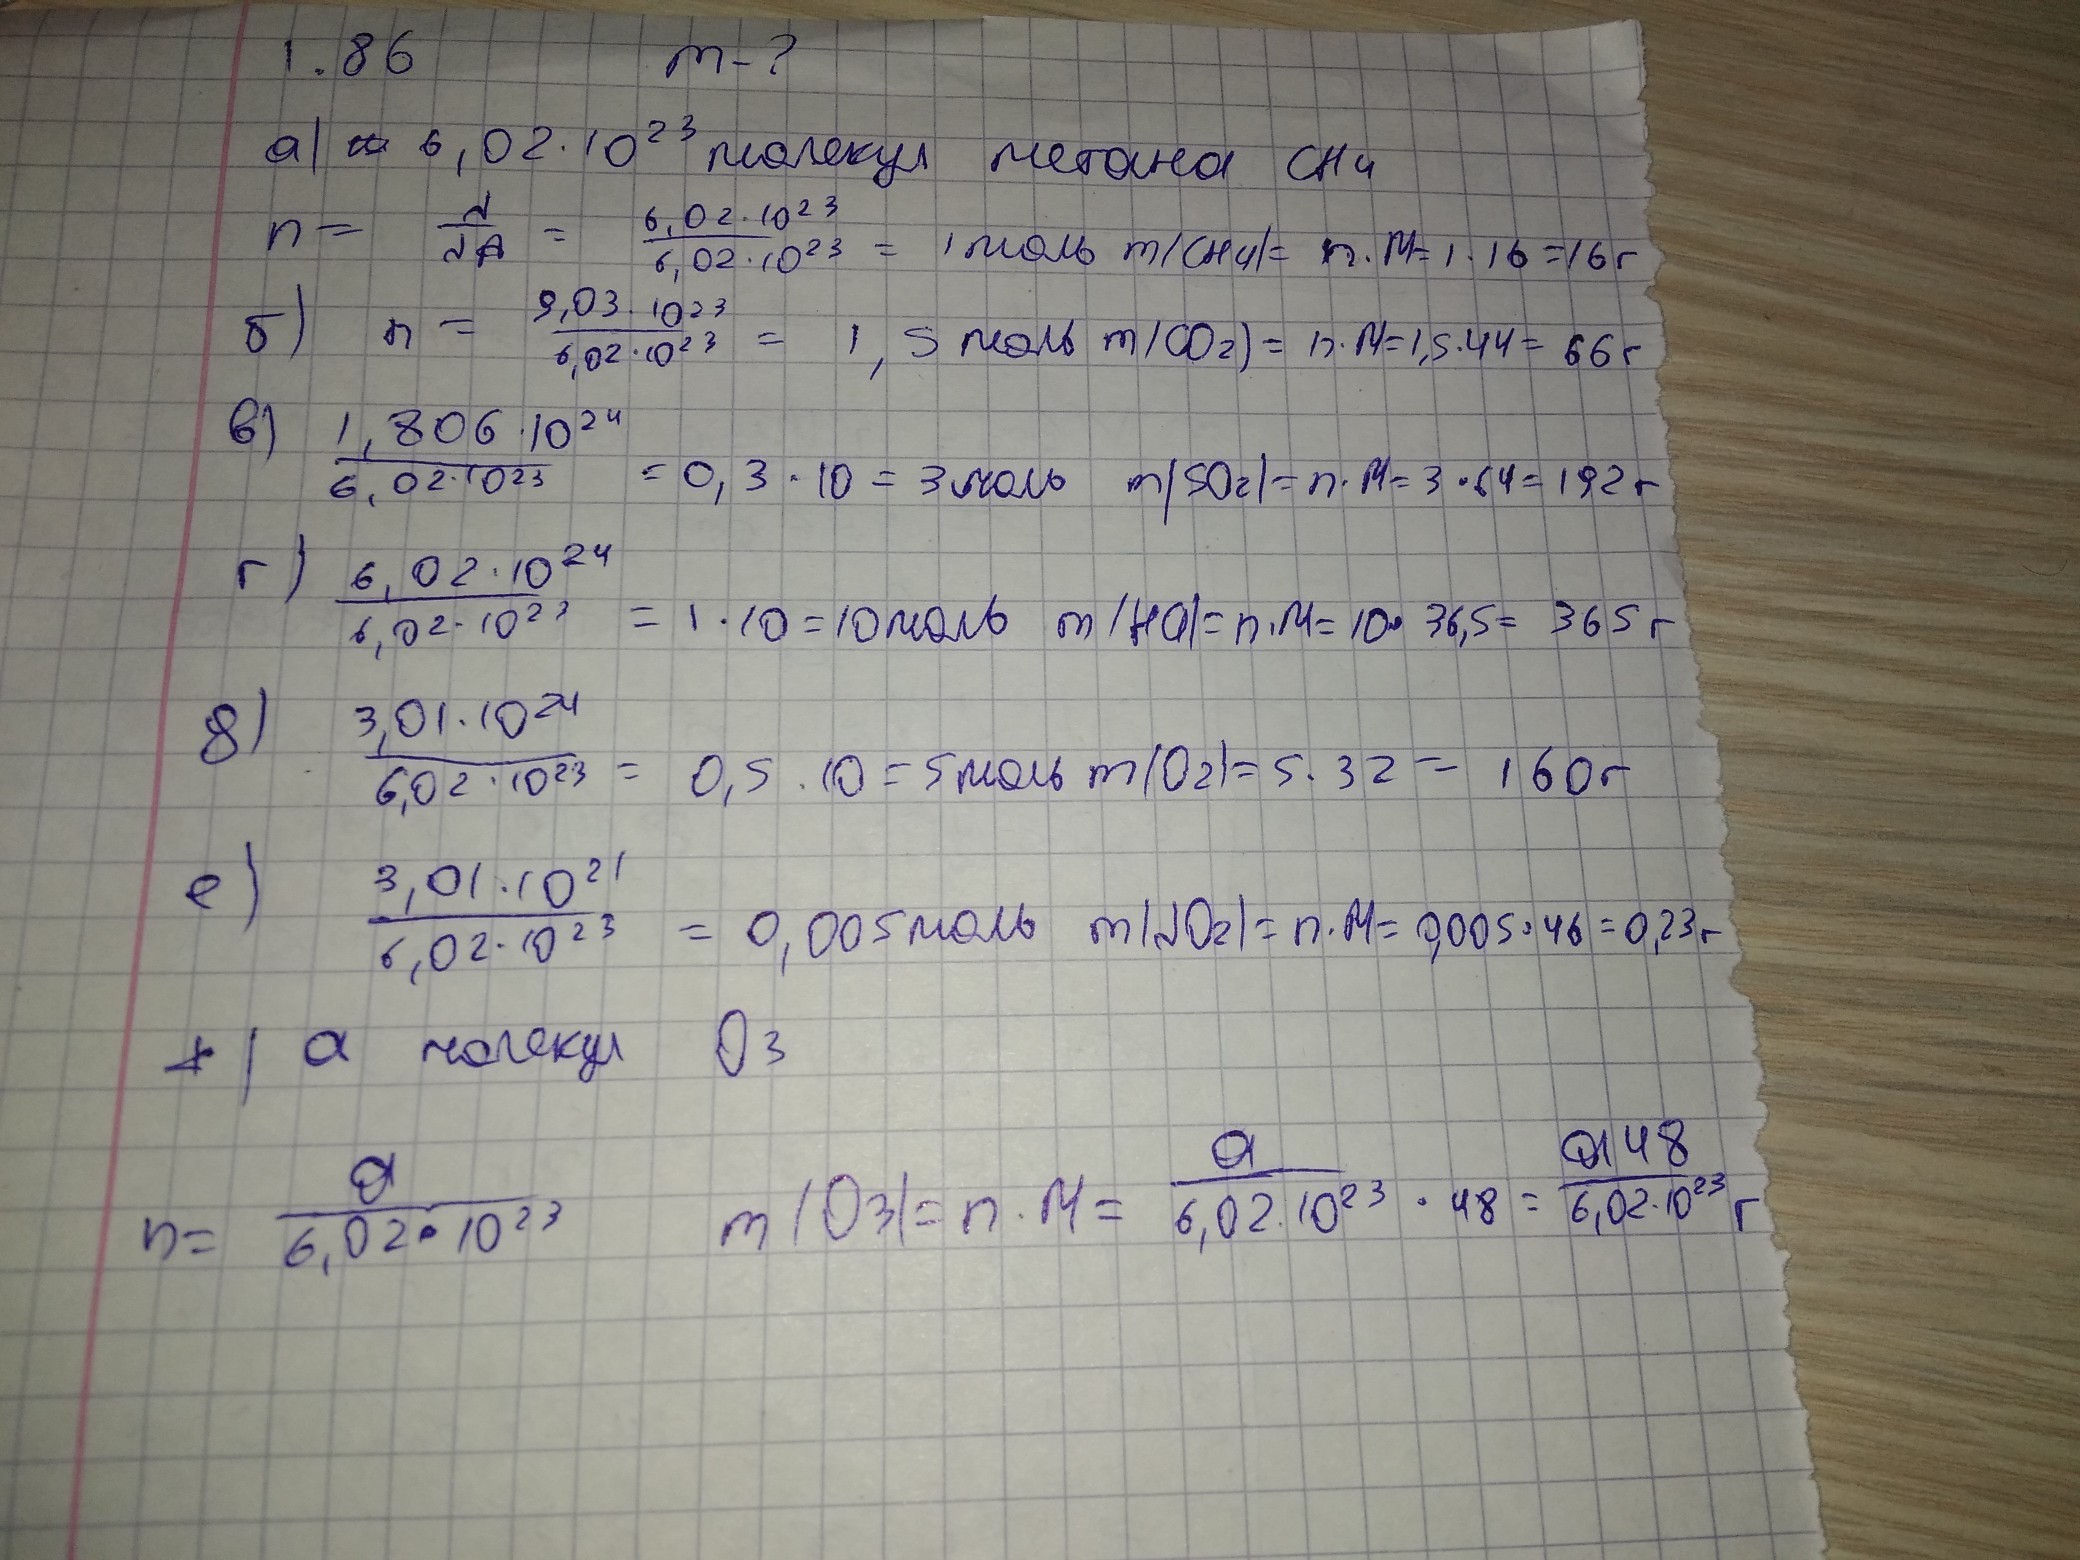 1.86 m-?
а) 6,02·10²³ молекул метана CH₄
n = N/NA = 6,02·10²³/6,02·10²³ = 1 моль m(CH₄)= n·M=1·16=16г
б) n = 9,03·10²³/6,02·10²³ = 1,5 моль m(CO₂)= n·M=1,5·44= 66г
в) 1,806·10²⁴/6,02·10²³ =0,3·10=3моль m(SO₂)=n·M=3·64=192г
г) 6,02·10²⁴/6,02·10²³ =1·10=10моль m(HCl)=n·M=10·36,5= 365г
д) 3,01·10²⁴/6,02·10²³ = 0,5·10=5моль m(O₂)=5·32= 160г
е) 3,01·10²¹/6,02·10²³ = 0,005моль m(NO₂)=n·M=0,005·46=0,23г
ж) а молекул O₃
n= a/6,02·10²³ m(O₃)=n·M= a/6,02·10²³ ·48= a48/6,02·10²³ г